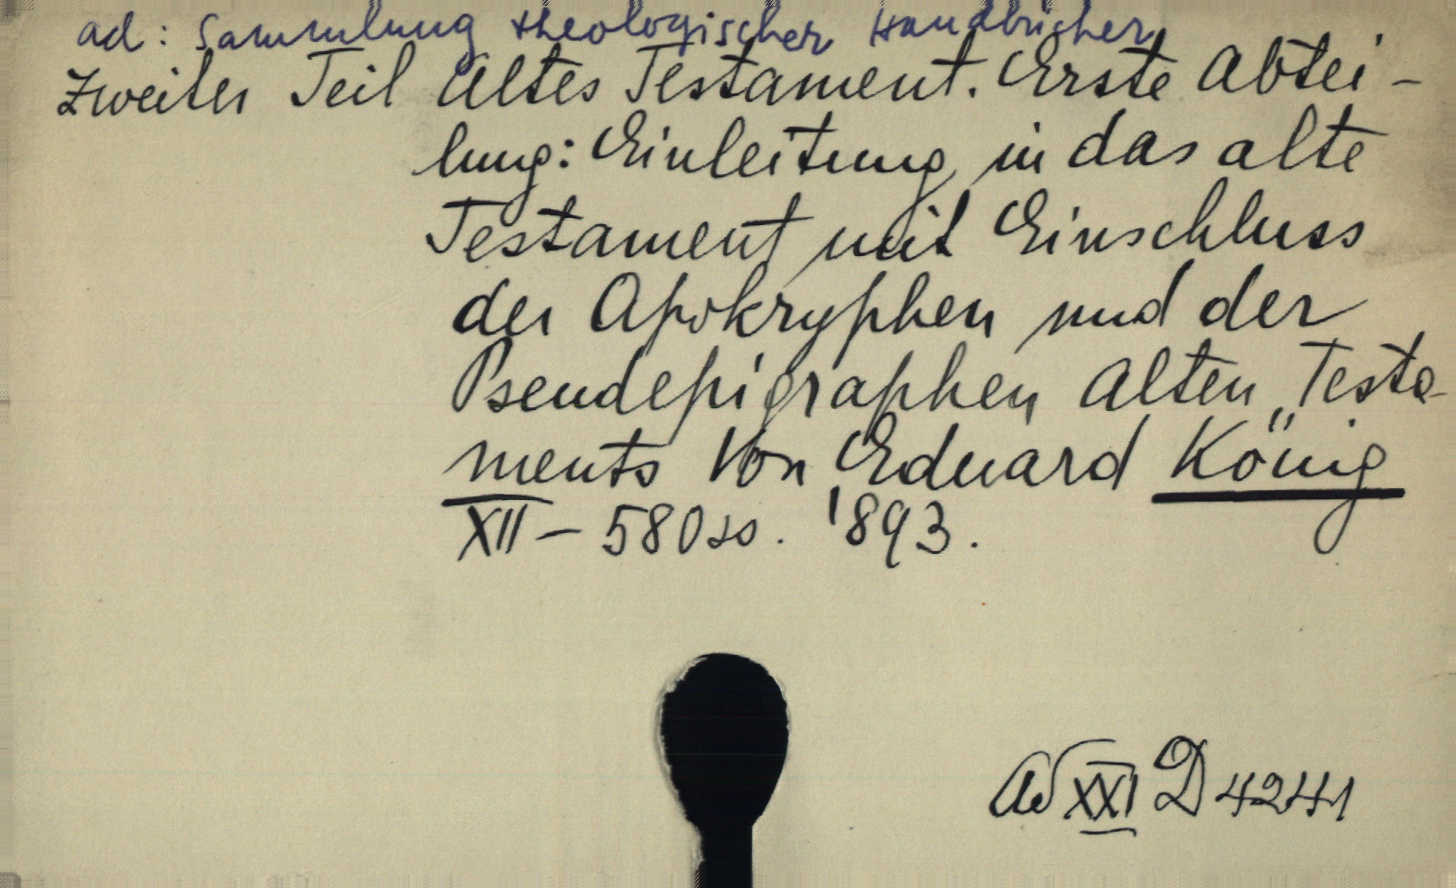 ad: Sammlung theologischer Handbücher
Zweiter Teil Altes Testament. Erste Abtei-
lung: Einleitung in das alte
Testament mit Einschluss
der Apokryphen und der
Pseudepigraphen Alten Testa-
ments Von Eduard König
XII - 580 ss. 1893.
Ad XXI D 4241